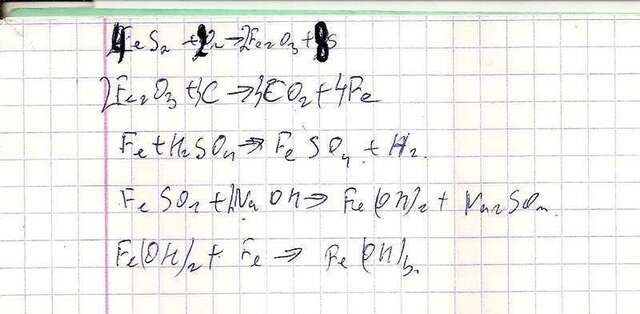 4FeS2 + O2 → 2Fe2O3 + 8S
2Fe2O3 + 3C → 3CO2 + 4Fe
Fe + H2SO4 → FeSO4 + H2.
FeSO4 + 2NaOH → Fe(OH)2 + Na2SO4
Fe(OH)2 + Fe → Fe(OH)3.